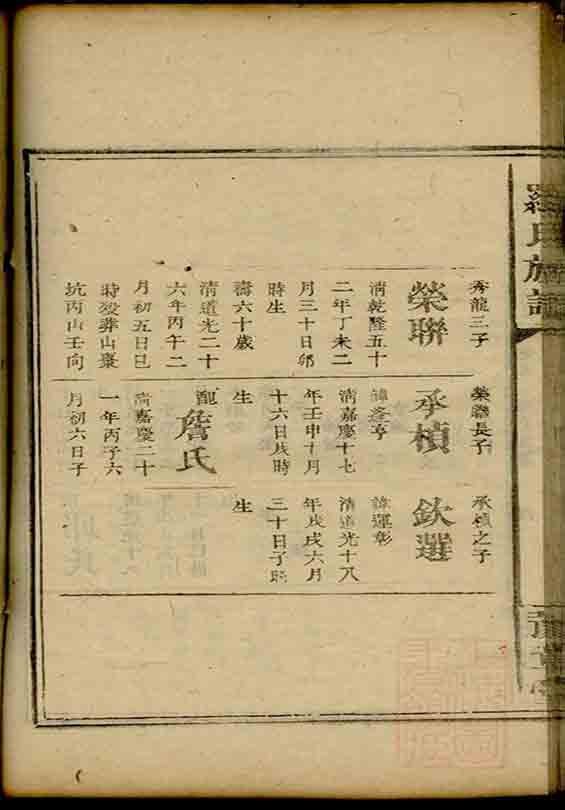 羅氏族譜
秀龍三子
榮聯
清乾隆五十
二年丁未二
月三十日卯
時生
壽六十歲
清道光二十
六年丙午二
月初五日巳
時歿葬山棗
坑丙山壬向
榮聯長子
承楨
諱逢亨
清嘉慶十七
年壬申十月
十六日戌時
生
配
詹氏
清嘉慶二十
一年丙子六
月初六日子
承楨之子
欽選
諱運彰
清道光十八
年戊戌六月
三十日子時
生